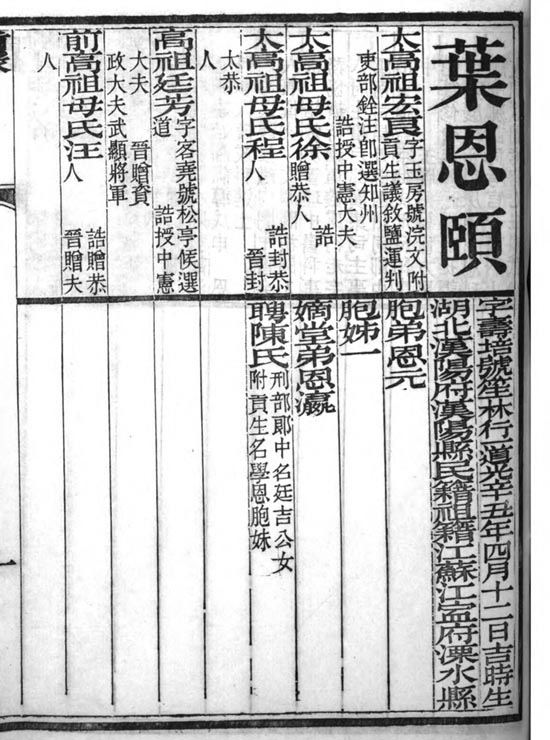 葉恩頤
字壽培號坐林行道光辛五年四月十二日吉時生
湖北漢陽府漢陽縣民籍祖籍江蘇江寍府溧水縣
太高祖宏良字玉房號浣文附
貢生議敘鹽運判
吏部銓注卽選知州
誥授中憲大夫
太高祖母氏徐贈恭人 誥
太高祖母氏程人 誥封恭
晉封
太恭
人
高祖廷芳字客堯號松亭候選
道 誥授中憲
大夫 晉贈資
政大夫武顯將軍
前高祖母氏汪人 誥贈恭
晉贈夫
人
胞弟恩元
胞姊一
嫡堂弟恩瀛
聘陳氏刑部郎中名廷吉公女
附貢生名學恩胞妹